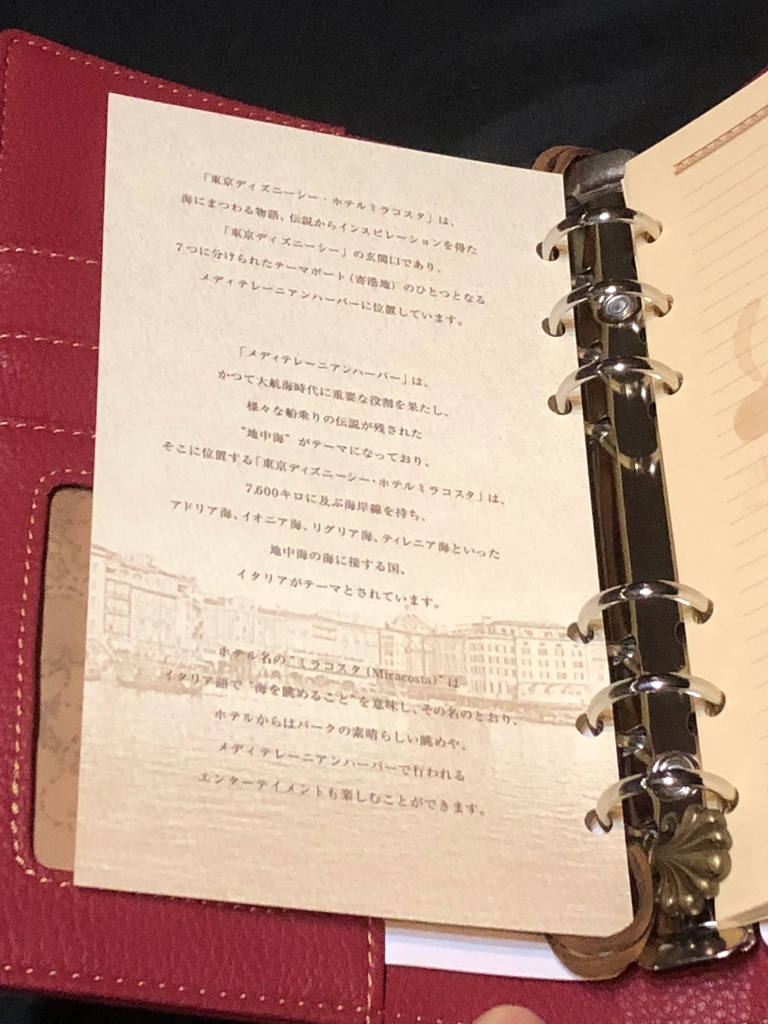 「東京ディズニーシー・ホテルミラコスタ」は、
海にまつわる物語、伝説からインスピレーションを得た
「東京ディズニーシー」の玄関口であり、
7つに分けられたテーマポート(寄港地)のひとつとなる
メディテレーニアンハーバーに位置しています。
「メディテレーニアンハーバー」は、
かつて大航海時代に重要な役割を果たし、
様々な船乗りの伝説が残された
"地中海"がテーマになっており、
そこに位置する「東京ディズニーシー・ホテルミラコスタ」は、
7,600キロに及ぶ海岸線を持ち、
アドリア海、イオニア海、リグリア海、ティレニア海といった
地中海の海に接する国、
イタリアがテーマとされています。
ホテル名の"ミラコスタ(Miracosta)"は
イタリア語で"海を眺めること"を意味し、その名のとおり、
ホテルからはパークの素晴らしい眺めや、
メディテレーニアンハーバーで行われる
エンターテイメントも楽しむことができます。